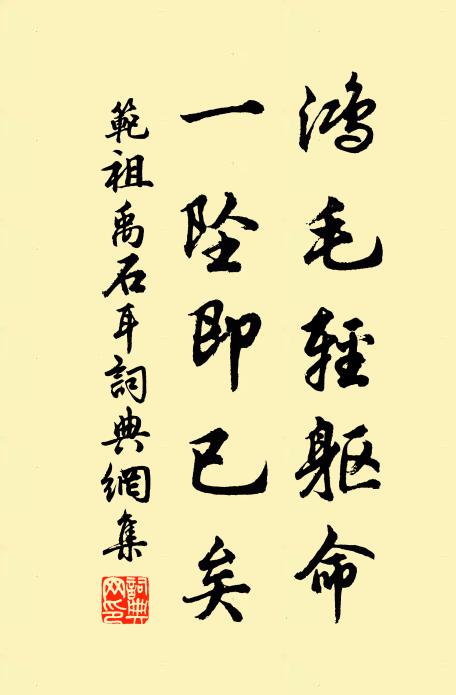 鴻毛輕軀命
一墜即已矣
範祖禹石耳詞典網集
詞典網印